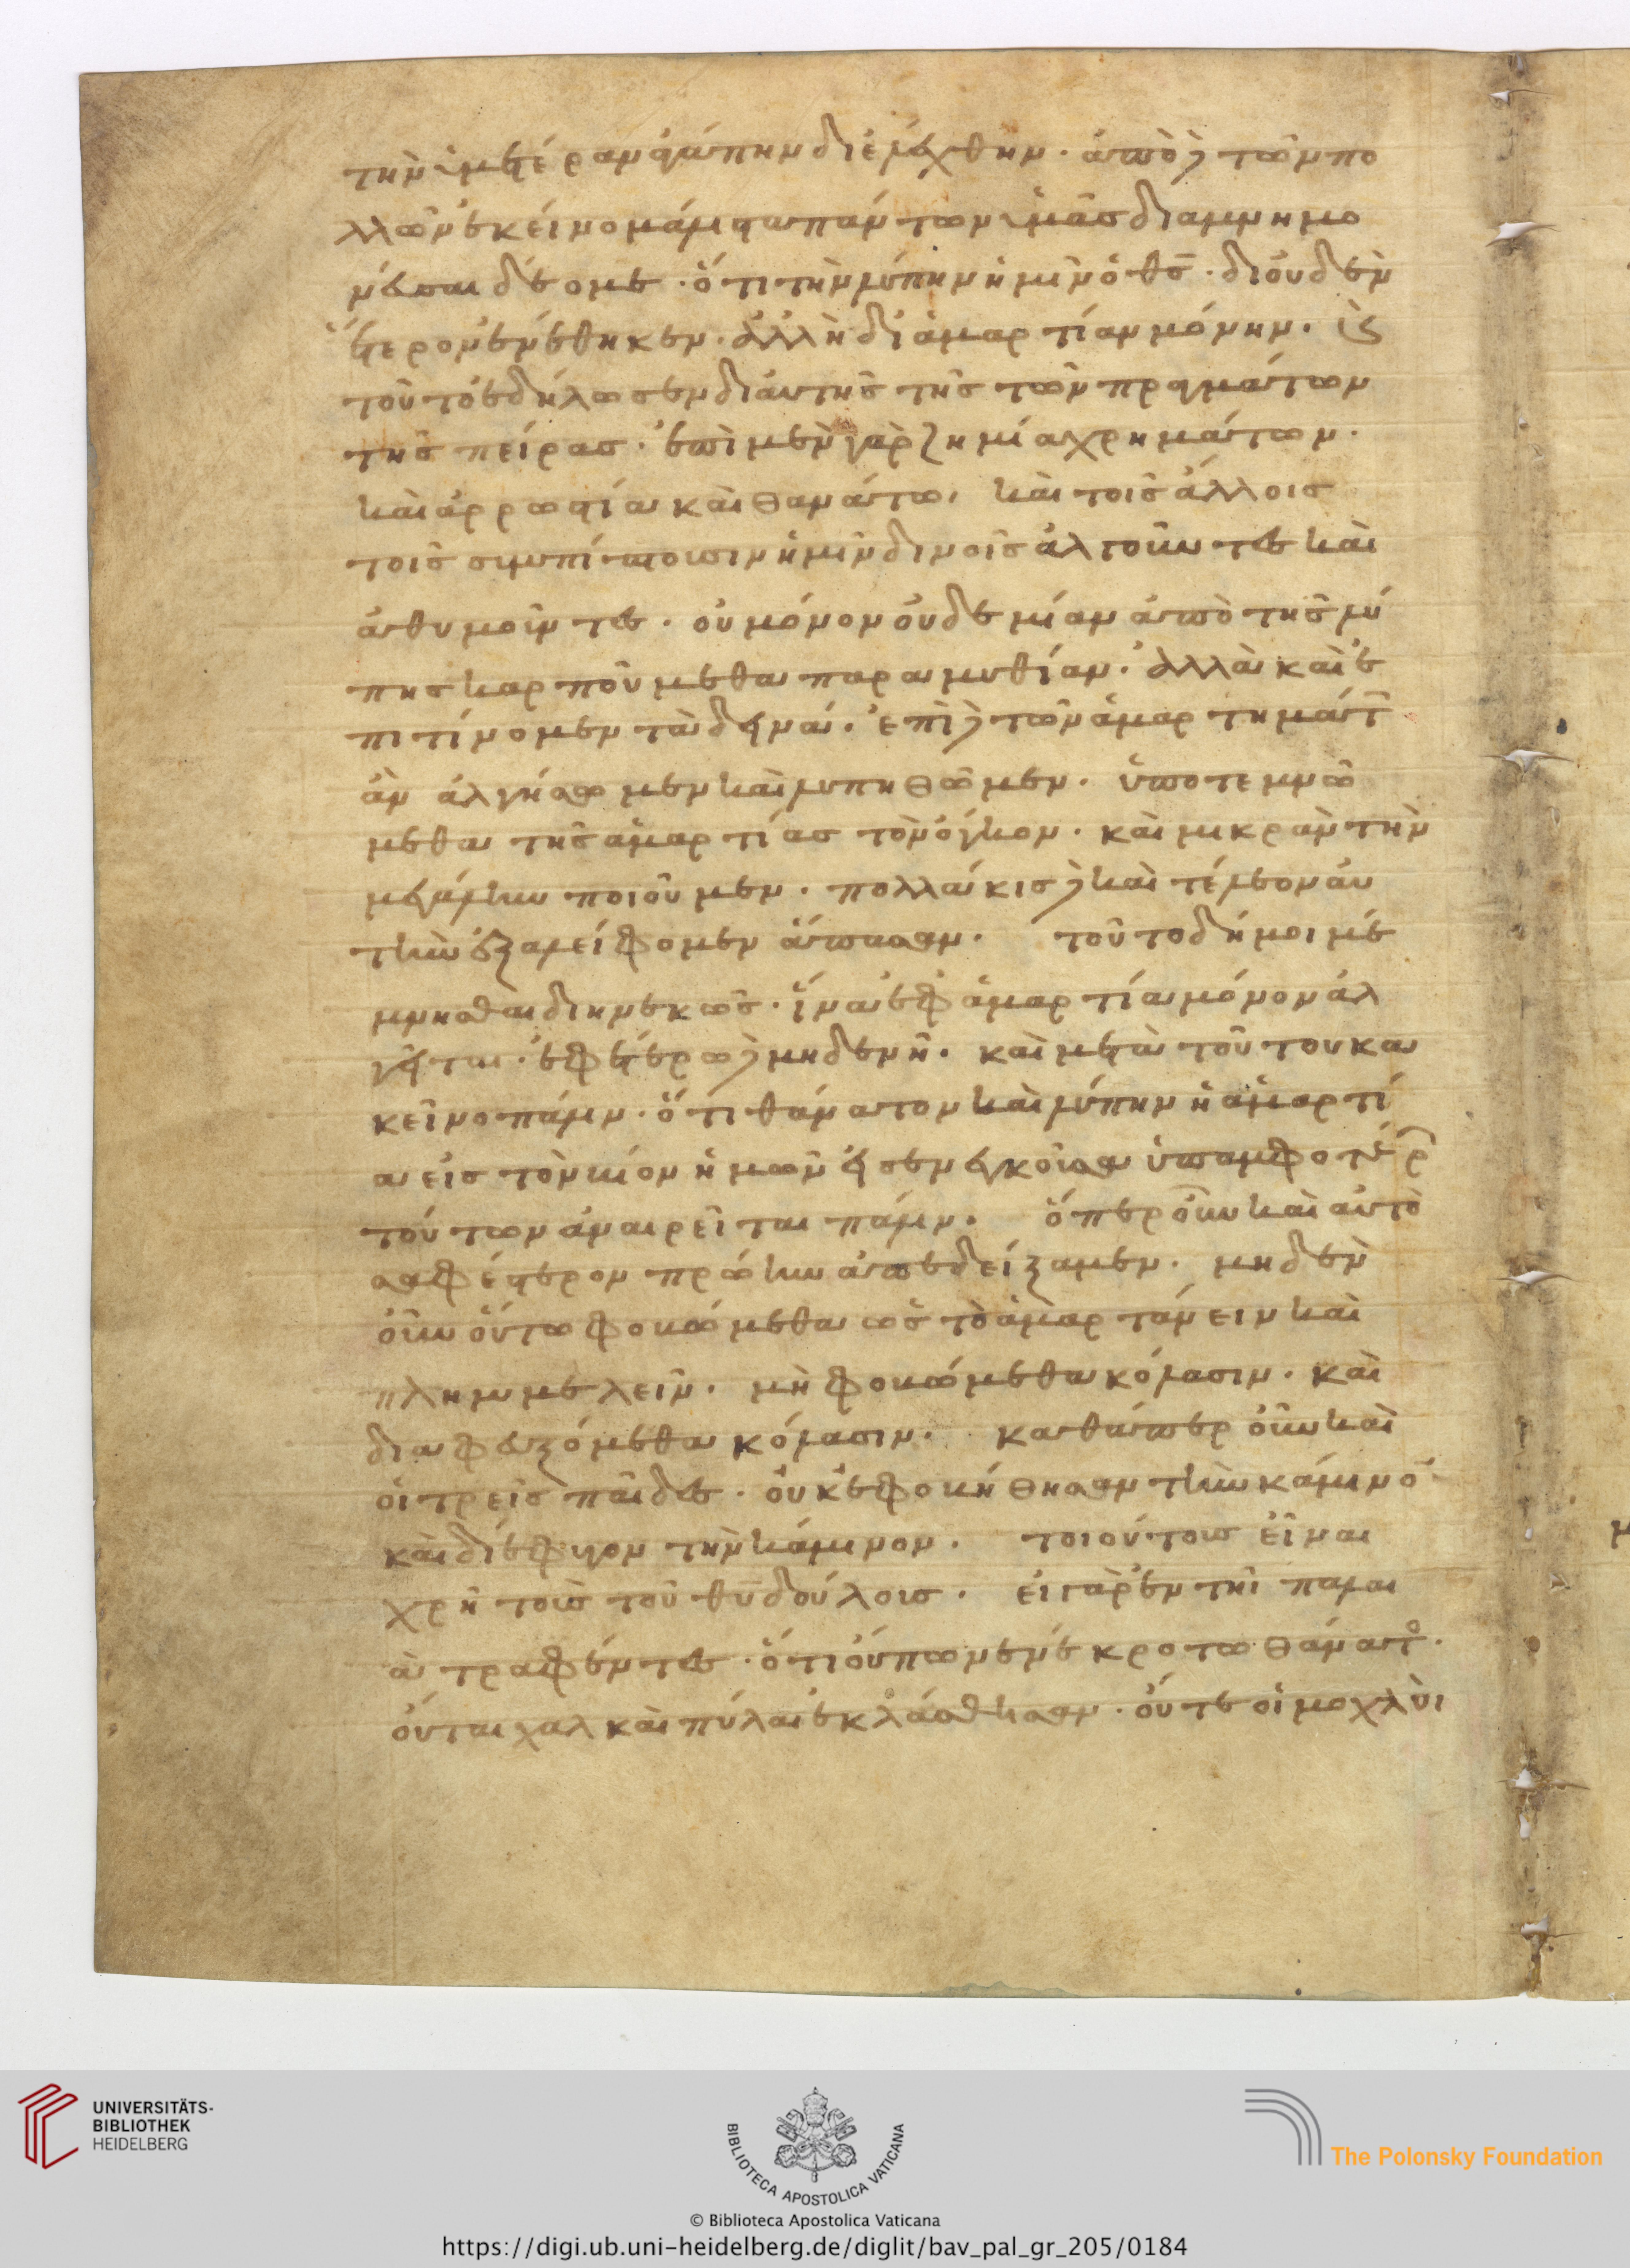 τὴν ὑμετέραν ἀγάπην διελέχθην. ἀπὸ δὲ τῶν πο
λλῶν ἐκεῖνο μάλιστα πάντων ὑμᾶς διαμνημο
νεῦσαι δέομαι. ὅτι τὴν λύπην ἡμῖν ὁ θς. δι' οὐδὲν
ἕτερον ἐνέθηκεν. ἀλλ' ἢ δι' ἁμαρτίαν μόνην. κ
τοῦτο ἐδήλωσεν δι' αὐτῆς τῆς τῶν πραγμάτων
τῆς πείρας. ἐπὶ μὲν γὰρ ζημία χρημάτων.
καὶ ἀρρωστία καὶ θανάτω, καὶ τοῖς ἄλλοις
τοῖς συμπίπτουσιν ἡμῖν δεινοῖς ἀλγοῦντες καὶ
ἀθυμοῦντες. οὐ μόνον οὐδεμίαν ἀπὸ τῆς λύ
πης καρπούμεθα παραμυθίαν. ἀλλὰ καὶ ἐ
πιτείνομεν τὰ δεινά. ἐπὶ δὲ τῶν ἁμαρτημάτ
ἂν ἀλγήσωμεν καὶ λυπηθῶμεν. ὑποτεμνώ
μεθα τῆς ἁμαρτίας τὸν ὄγκον. καὶ μικρὰν τὴν
μεγάλην ποιοῦμεν. πολλάκις δὲ καὶ τέλεον αὐ
τὴν ἐξαλείφομεν ἅπασαν. τοῦτο δή μοι μέ
μνησθαι διηνεκῶς. ἵνα ἐφ' ἁμαρτία μόνον ἀλ
γῆται. ἐφ' ἑτέρω δὲ μηδενί. καὶ μετὰ τούτου κα
κεῖνο πάλιν. ὅτι θάνατον καὶ λύπην ἡ ἁμαρτί
α εἰς τὸν βίον ἡμῶν εἰσενεγκοῦσα ὑπ' ἀμφοτέρ
τούτων ἀναιρεῖται πάλιν. ὅπερ οὖν καὶ αὐτὸ
σαφέστερον πρώην ἀπεδείξαμεν. μηδὲν
οὖν οὕτω φοβώμεθα ὡς τὸ ἁμαρτάνειν καὶ
πλημμελεῖν. μὴ φοβώμεθα κόλασιν. καὶ
διαφευξόμεθα κόλασιν. καθάπερ οὖν καὶ
οἱ τρεῖς παῖδες. οὐκ ἐφοβήθησαν τὴν κάμινο
καὶ διέφυγον τὴν κάμινον. τοιούτους εἶναι
χρὴ τοὺς τοῦ θυ δούλους. εἰ γὰρ ἐν τῆι παλαι
ᾶ τραφέντες. ὅτι οὔπω νενέκρωτο θάνατο.
οὔτε αἱ χαλκαὶ πύλαι ἐκλάσθησαν. οὔτε οἱ μοχλοὶ
UNIVERSITÄTS-
BIBLIOTHEK
HEIDELBERG
BIBLIOTECA APOSTOLICA VATICANA
The Polonsky Foundation
© Biblioteca Apostolica Vaticana
https://digi.ub.uni-heidelberg.de/diglit/bav_pal_gr_205/0184